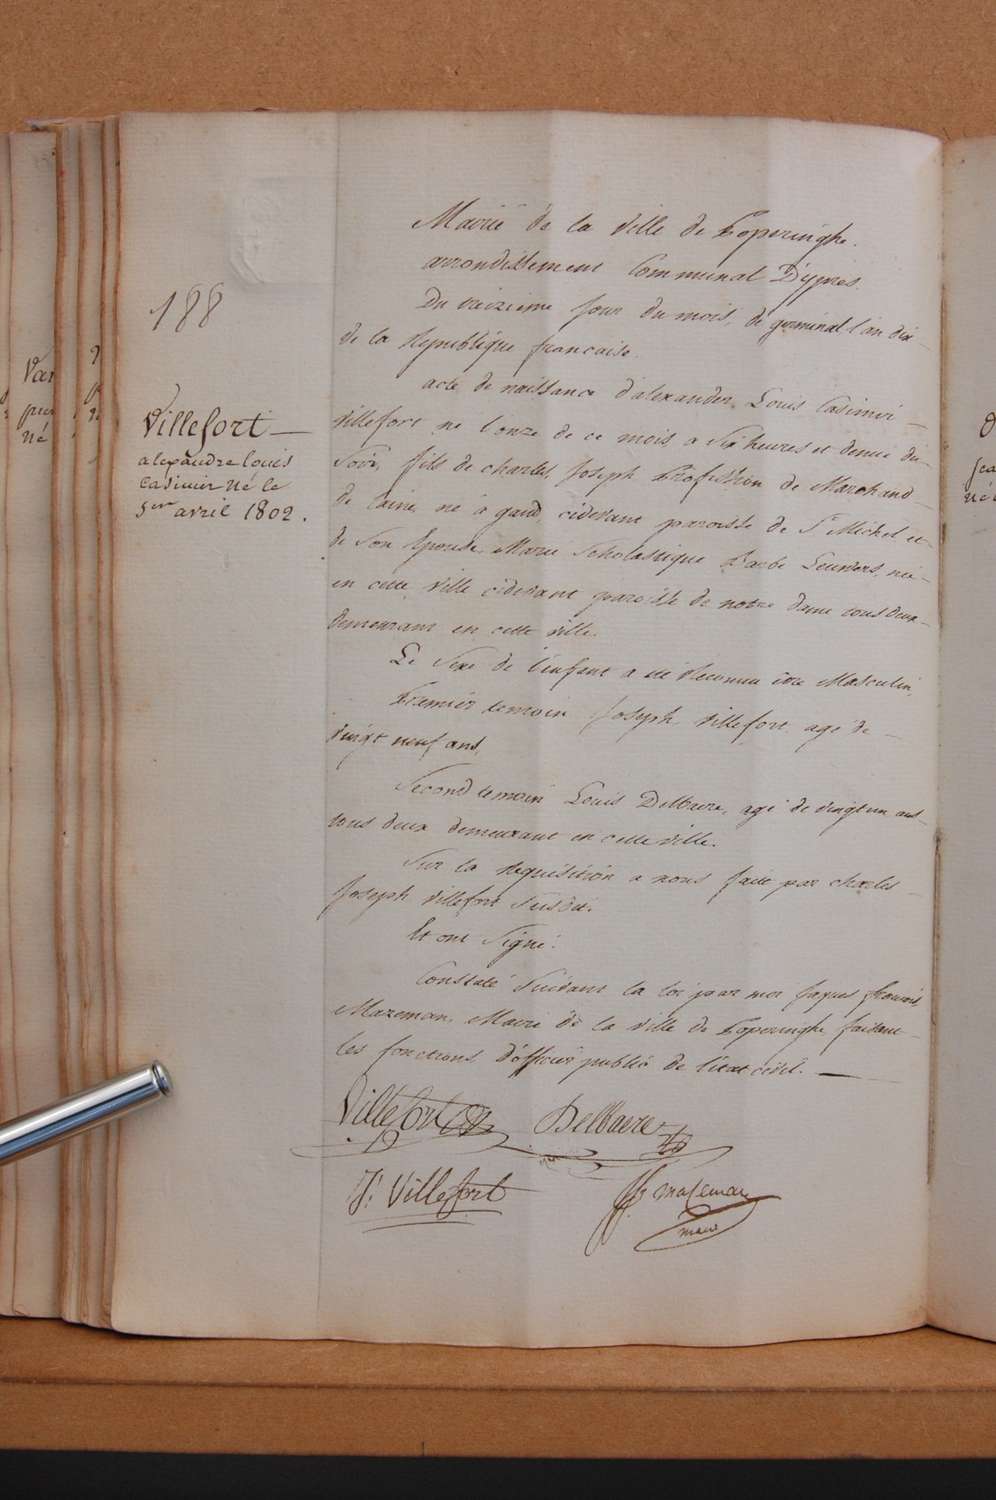 Mairie de la ville de Poperinghe.
arrondissement Communal D'ypres.
Du treizieme jour du mois de germinal l'an dix
de la Republique francaise.
188
acte de naissance d'alexander Louis Casimir
villefort né l'onze de ce mois a six heures et demie du
Soir, fils de charles Joseph Profession de Marchand
de laine né à gand cidevant paroisse de St Michel et
de Son Epouse Marie Scholastique Barbe Leuwers, née
en cette ville cidevant paroisse de notre dame tous deux
demeurant en cette ville.
Villefort —
alexandre louis
Casimir né le
1er avril 1802.
Le Sexe de l'enfant a été Reconnu être Masculin,
Premier temoin Joseph villefort agé de
vingt neuf ans,
Second temoin Louis Delbaere, agé de vingt un ans
tous deux demeurant en cette ville.
Sur la Requisition a nous faite par charles
Joseph villefort Susdit.
Et ont Signé.
Constaté Suivant la loi par moi Jaques francois
Mazeman, Maire de la ville de Poperinghe faisant
les fonctions d'officier public de l'état civil. —
Villefort
Delbaere
J: Villefort
mazeman
maire
Van
né
né